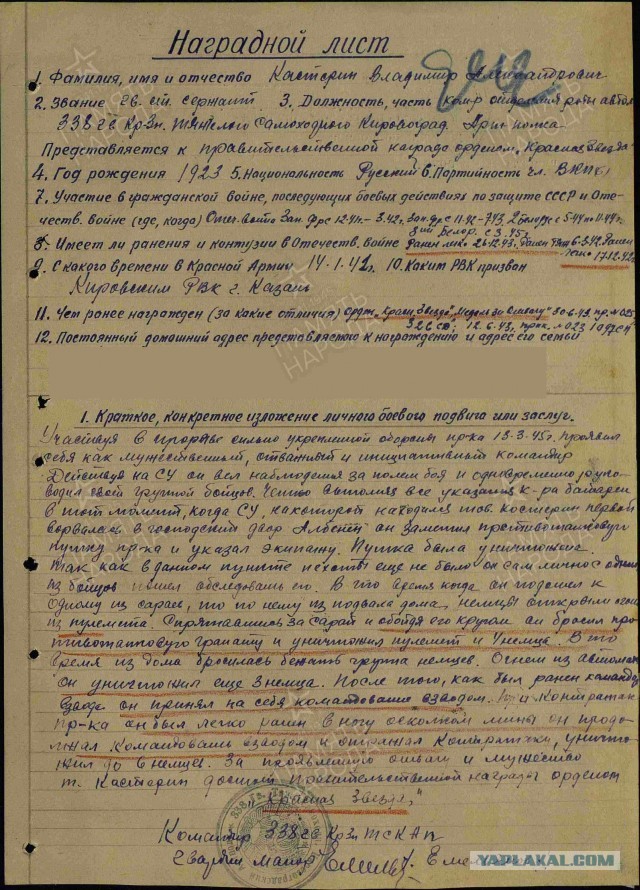 Наградной лист
1. Фамилия, имя и отчество Кастерин Владимир Александрович
2. Звание гв. ст. сержант 3. Должность, часть ком-р отделения роты автом.
338 гв Кр-Зн. Тяжелого Самоходного Кировоград. Арт. полка
Представляется к правительственной награде орденом "Красная Звезда"
4. Год рождения 1923 5. Национальность Русский 6. Партийность чл. ВКП(
7. Участие в гражданской войне, последующих боевых действиях по защите СССР и Оте-
честв. войне (где, когда) 3.42г. 
3 ий Белор. с 3.45г.
8. Имеет ли ранения и контузии в Отечеств. войне Ранен 26.12.43. Ранен 6.3.42. Ранен
17.12.42
9. С какого времени в Красной Армии 14.1.42г. 10. Каким РВК призван
Кировским РВК г. Казань
11. Чем ранее награжден (за какие отличия) Орден "Красн. Звезда", Медаль "За Отвагу" 30.6.43. пр. №025
326 сд; 12.6.43. прик. №023
12. Постоянный домашний адрес представляемого к награждению и адрес его семьи
1. Краткое, конкретное изложение личного боевого подвига или заслуг.
Участвуя в прорыве сильно укрепленной обороны пр-ка 13-3-45г. проявил
себя как мужественный, отважный и инициативный командир
Действуя на СУ он вел наблюдения за полем боя и одновременно руко-
водил своей группой бойцов. Четко выполняя все указания к-ра батареи
в тот момент, когда СУ, на которой находился тов. Кастерин первой
ворвалась в господский двор он заметил противотанковую
пушку пр-ка и указал экипажу. Пушка была уничтожена.
Так как в данном пункте пехоты еще не было он сам лично с одним
из бойцов пошел обследовать его. В то время когда он подошел к
одному из сараев, то по нему из подвала дома немцы открыли огонь
из пулемета. Спрятавшись за сарай и обойдя его кругом он бросил про-
тивотанковую гранату и уничтожил пулемет и 4 немца. В это
время из дома бросилась бежать группа немцев. Огнем из автомата
он уничтожил еще 3 немца. После того, как был ранен командир
взвода он принял на себя командование взводом. При контратаке
пр-ка он был легко ранен в ногу осколком мины он продо-
лжал командовать взводом и отражал контратаки, уничто-
жил до 8 немцев. За проявленную отвагу и мужество
т. Кастерин достоин правительственной награды орденом
"Красная Звезда"
Командир 338 гв Кр-Зн ТСКАП
Гвардии майор
ПАМЯТЬ НАРОДА
YAPLAKAL.COM